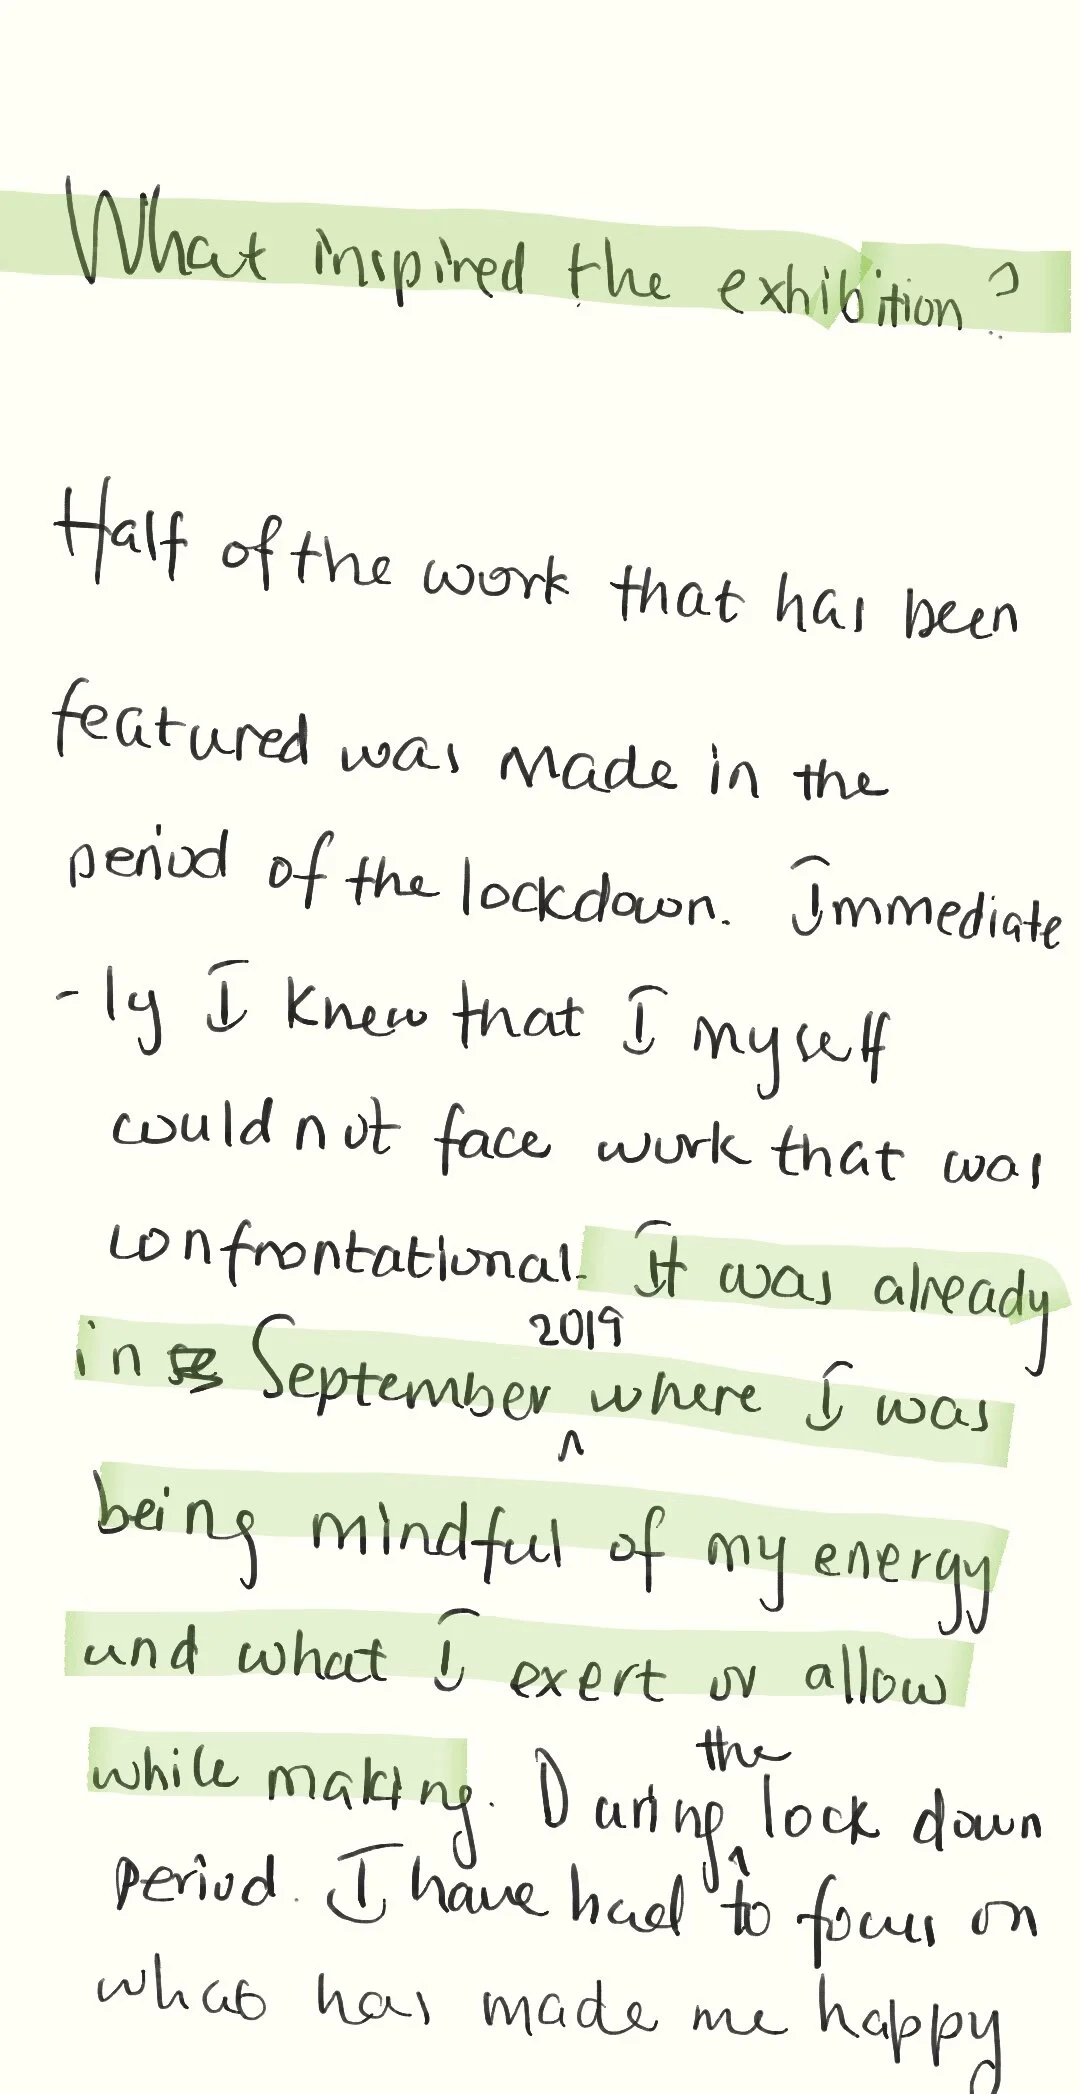 What inspired the exhibition?
Half of the work that has been
featured was made in the
period of the lockdown. Immediate
-ly I knew that I myself
could not face work that was
confrontational. It was already
in September 2019 where I was
being mindful of my energy
and what I exert or allow
while making. During the lock down
period. I have had to focus on
what has made me happy